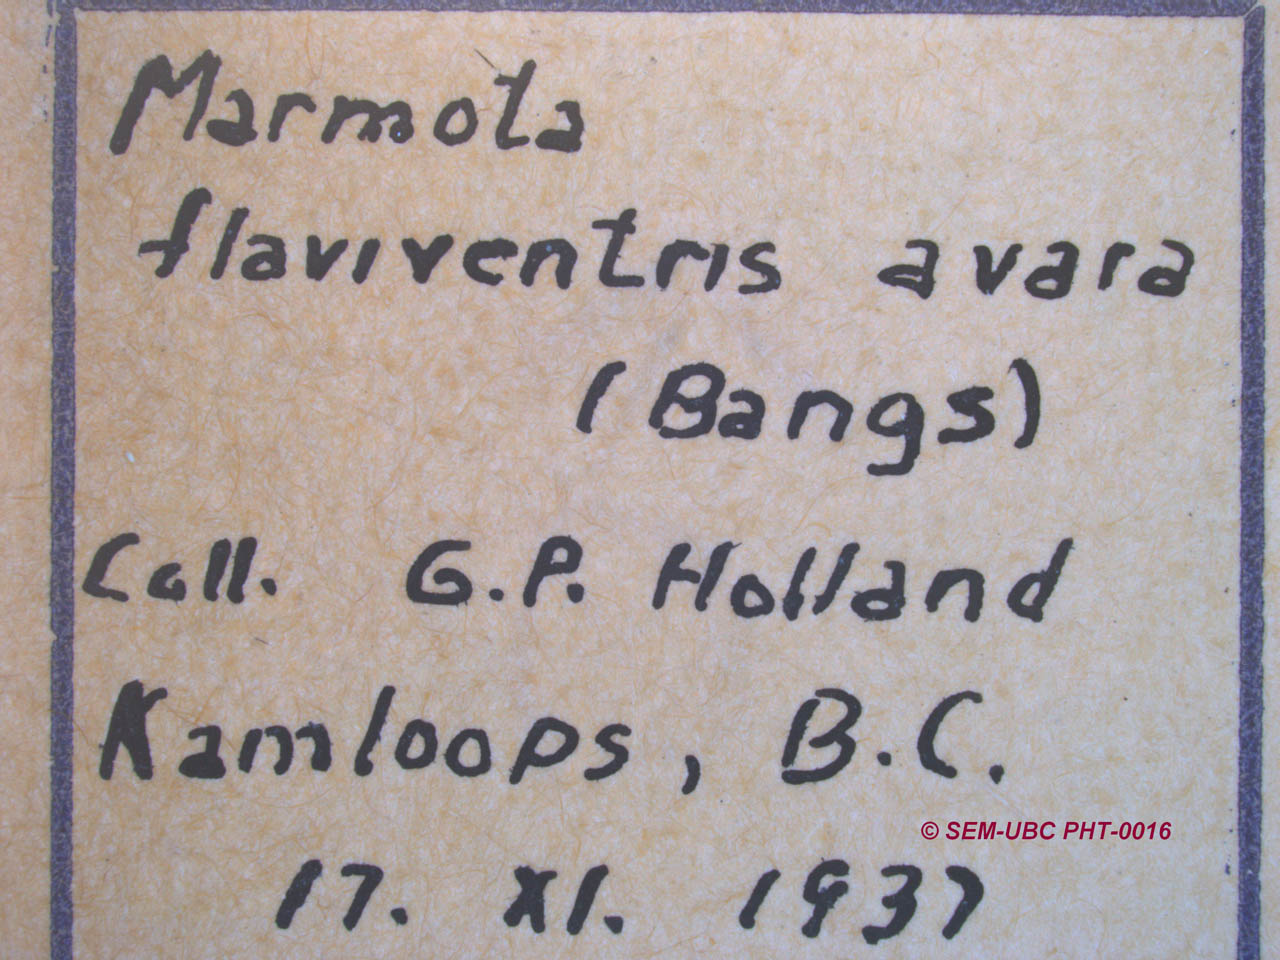 Marmota
flaviventris avara
(Bangs)
Coll. G.P. Holland
Kamloops, B.C.
© SEM-UBC PHT-0016
17. XI. 1937